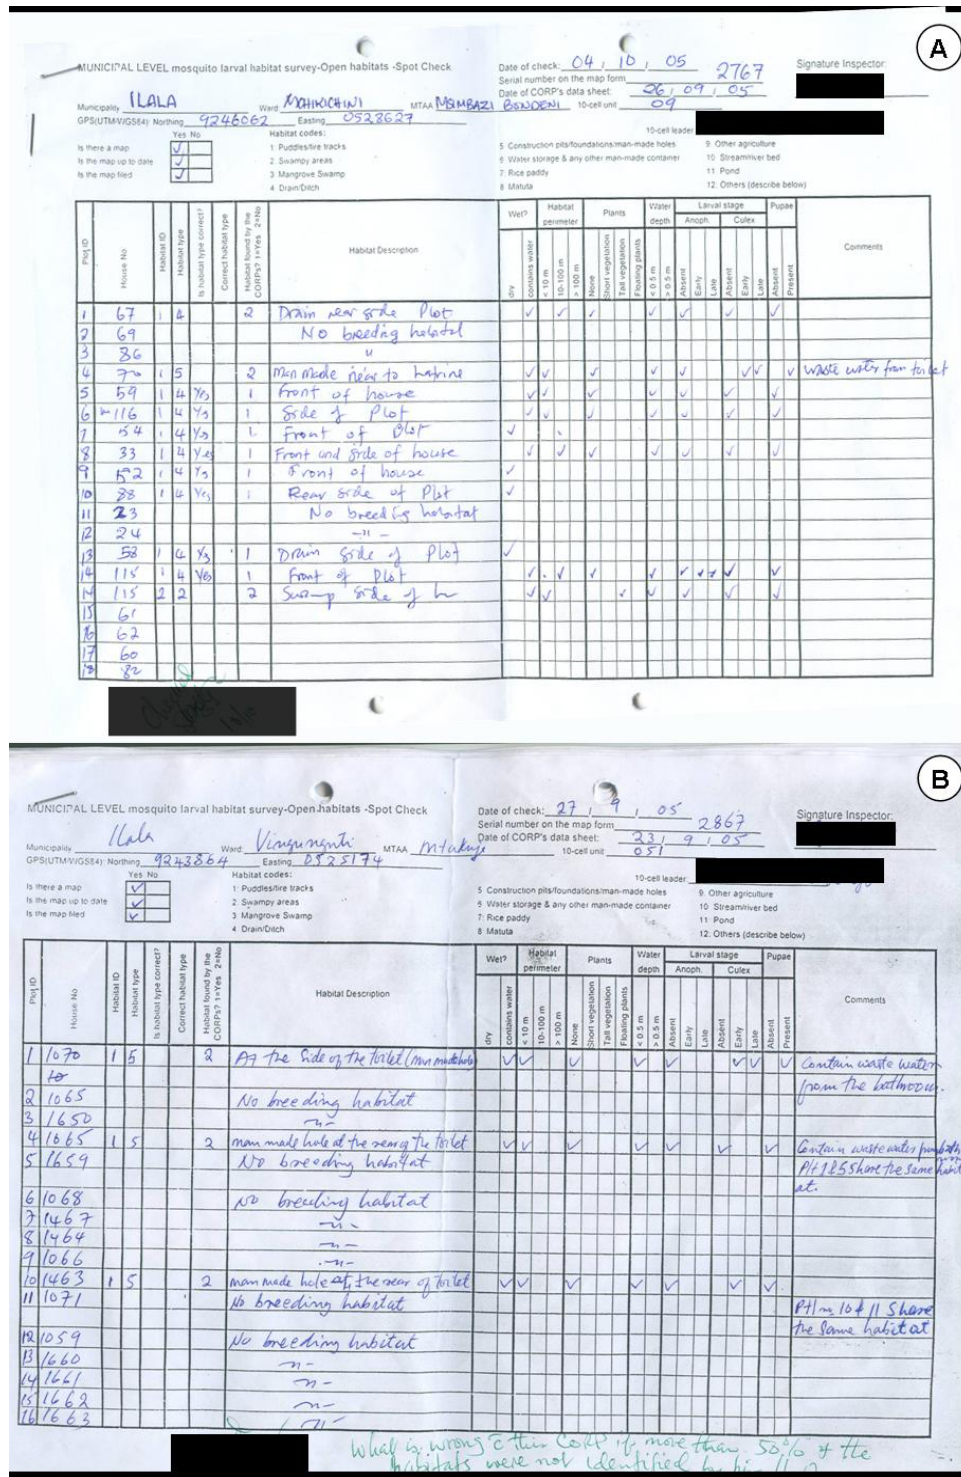 A
MUNICIPAL LEVEL mosquito larval habitat survey-Open habitats -Spot Check
Date of check: 04 / 10 / 05
2767
Signature Inspector:
Serial number on the map form
Date of CORP's data sheet: 26 / 09 / 05
Municipality ILALA Ward MCHIKICHINI MTAA MSIMBAZI BONDENI 10-cell unit 09
GPS(UTM/WGS84) Northing 9246062 Easting 0528627
10-cell leader
Yes No
Habitat codes:
Is there a map ✓
Is the map up to date ✓
Is the map filed ✓
1: Puddles/tire tracks
2: Swampy areas
3: Mangrove Swamp
4: Drain/Ditch
5: Construction pits/foundations/man-made holes
6: Water storage & any other man-made container
7: Rice paddy
8: Matuta
9: Other agriculture
10: Stream/river bed
11: Pond
12: Others (describe below)
Plot ID
House No
Habitat ID
Habitat type
Is habitat type correct?
Correct habitat type
Habitat found by the CORPs? 1=Yes 2=No
Habitat Description
Wet?
Habitat perimeter
Plants
Water depth
Larval stage
Anoph.
Culex
Pupae
Comments
dry
contains water
< 10 m
10-100 m
> 100 m
None
Short vegetation
Tall vegetation
Floating plants
< 0.5 m
> 0.5 m
Absent
Early
Late
Absent
Early
Late
Absent
Present
1 67 1 4 2 Drain rear side Plot
2 69 No breeding habitat
3 86 "
4 70 1 5 2 Man made near to latrine waste water from toilet
5 59 1 4 Yes 1 Front of house
6 116 1 4 Ys 1 Side of Plot
7 54 1 4 Ys 1 Front of Plot
8 33 1 4 Yes 1 Front and side of house
9 52 1 4 Ys 1 Front of house
10 88 1 4 Yes 1 Rear side of Plot
11 23 No breeding habitat
12 24 -"-
13 58 1 4 Ys 1 Drain side of Plot
14 115 1 4 Yes 1 Front of Plot
14 115 2 2 2 Swamp side of
15 61
16 62
17 60
18 82
B
MUNICIPAL LEVEL mosquito larval habitat survey-Open habitats -Spot Check
Date of check: 27 / 9 / 05
Serial number on the map form 2867
Signature Inspector:
Date of CORP's data sheet: 23 / 9 / 05
Municipality Ilala Ward Vingunguti MTAA Mtakuja 10-cell unit 051
GPS(UTM/WGS84) Northing 9243864 Easting 0525174
10-cell leader
Yes No
Habitat codes:
Is there a map ✓
Is the map up to date ✓
Is the map filed ✓
1: Puddles/tire tracks
2: Swampy areas
3: Mangrove Swamp
4: Drain/Ditch
5: Construction pits/foundations/man-made holes
6: Water storage & any other man-made container
7: Rice paddy
8: Matuta
9: Other agriculture
10: Stream/river bed
11: Pond
12: Others (describe below)
Plot ID
House No
Habitat ID
Habitat type
Is habitat type correct?
Correct habitat type
Habitat found by the CORPs? 1=Yes 2=No
Habitat Description
Wet?
Habitat perimeter
Plants
Water depth
Larval stage
Anoph.
Culex
Pupae
Comments
dry
contains water
< 10 m
10-100 m
> 100 m
None
Short vegetation
Tall vegetation
Floating plants
< 0.5 m
> 0.5 m
Absent
Early
Late
Absent
Early
Late
Absent
Present
1 1070 1 5 2 At the side of the toilet (man made hole) Contain waste water
from the bathroom.
2 1065 No breeding habitat
3 1650 -"-
4 1065 1 5 2 man made hole at the rear of the toilet Contain waste water from bath
5 1659 No breeding habitat Plt 1 & 5 Share the same habit
at.
6 1068 No breeding habitat
7 1467 -"-
8 1464 -"-
9 1066 -"-
10 1463 1 5 2 man made hole at the rear of toilet
11 1071 No breeding habitat Plt 10 & 11 Share
the same habitat
12 1059 No breeding habitat
13 1660 -"-
14 1661 -"-
15 1662 -"-
16 1663 -"-
What is wrong c this CORP if more than 50% of the
habitats were not identified by